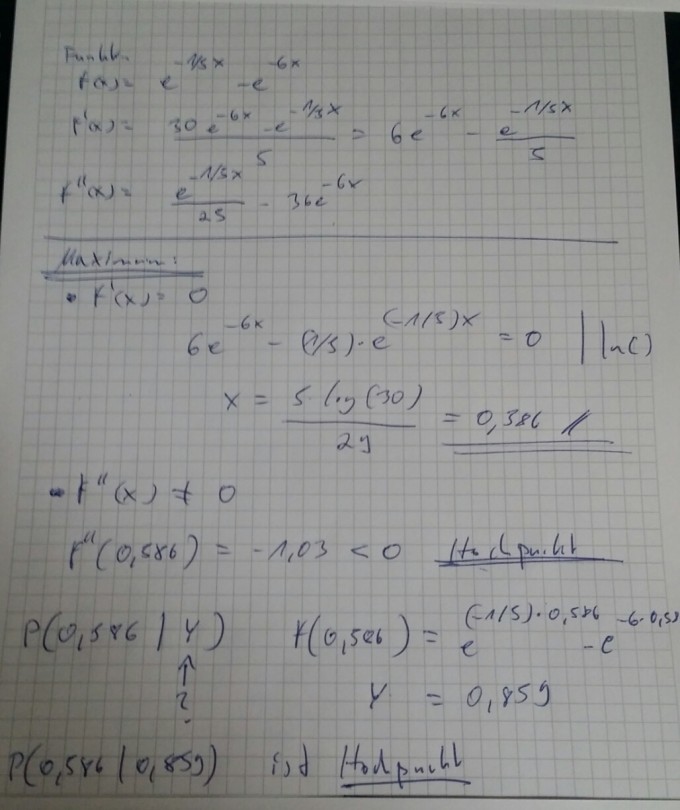 Funkt.
f(x) = e^{-1/5x} - e^{-6x}
f'(x) = (30e^{-6x} - e^{-1/5x})/5 = 6e^{-6x} - e^{-1/5x}/5
f''(x) = e^{-1/5x}/25 - 36e^{-6x}
Maximum:
• f'(x) = 0
6e^{-6x} - (1/5)·e^{(-1/5)x} = 0 | ln()
x = 5·log(30)/29 = 0,586 //
• f''(x) ≠ 0
f''(0,586) = -1,03 < 0 Hochpunkt
P(0,586 | Y) f(0,586) = e^{(-1/5)·0,586} - e^{-6·0,58}
↑
? Y = 0,859
P(0,586 | 0,859) ist Hochpunkt